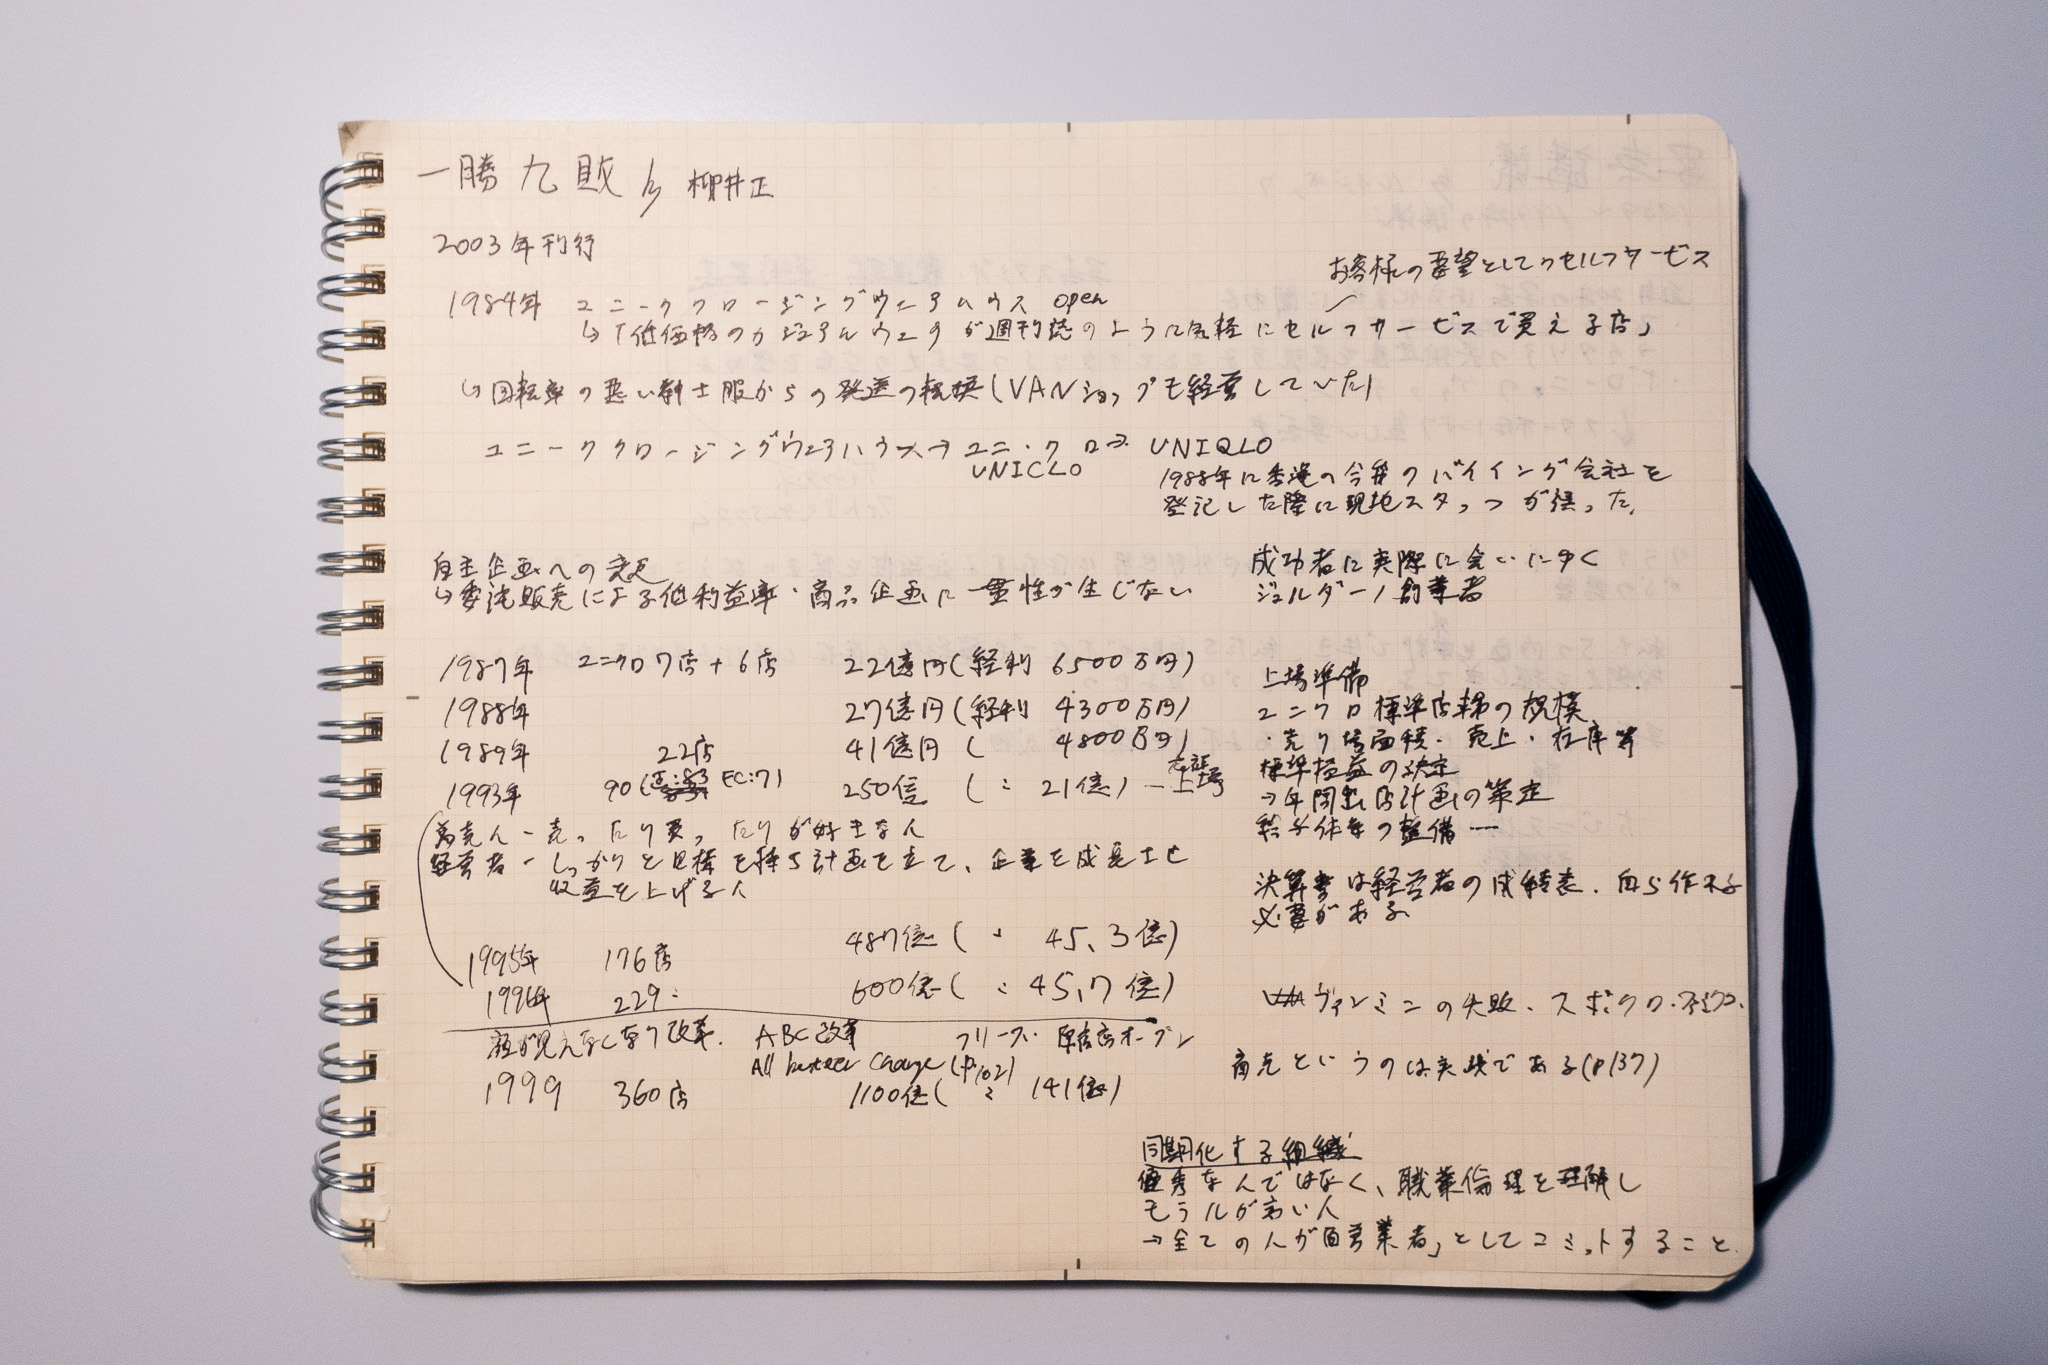 一勝九敗 by 柳井正
2003年刊行
お客様の要望としてのセルフサービス
1984年 ユニーククロージングウェアハウス open
↳「低価格のカジュアルウェアが週刊誌のように気軽にセルフサービスで買える店」
↳回転率の悪い紳士服からの発送の転換(VANショップも経営していた)
ユニーククロージングウェアハウス→ユニ・クロ→ UNIQLO
UNICLO
1988年に香港の合弁のバイイング会社を
登記した際に現地スタッフが誤った。
自主企画への変更
↳委託販売による低利益率・商品企画に一貫性が生じない
成功者に実際に会いにゆく
ジョルダーノ創業者
1987年 ユニクロ7店+6店 22億円(経利 6500万円)
1988年 27億円(経利 4300万円)
1989年 22店 41億円( 4800万円)
1993年 90( FC:7) 250億 (〃 21億)―上場
商売人-売ったり買ったりが好きな人
経営者-しっかりと目標を持ち計画を立て、企業を成長させ
収益を上げる人
上場準備
ユニクロ標準店舗の規模
・売り場面積・売上・在庫等
標準損益の決定
→年間出店計画の策定
給与体系の整備…
決算書は経営者の成績表、自ら作る
必要がある
1995年 176店 487億(〃 45.3億)
1996年 229〃 600億(〃 45.7億)
ヴァンミニの失敗、スポクロ・ファミクロ
顔が見えなくなり改革. ABC改革 フリース・原宿店オープン
All better change (P102)
1999 360店 1100億(〃 141億)
商売というのは失敗である(P137)
同期化する組織
優秀な人ではなく、職業倫理を理解し
モラルが高い人
→全ての人が「自営業者」としてコミットすること